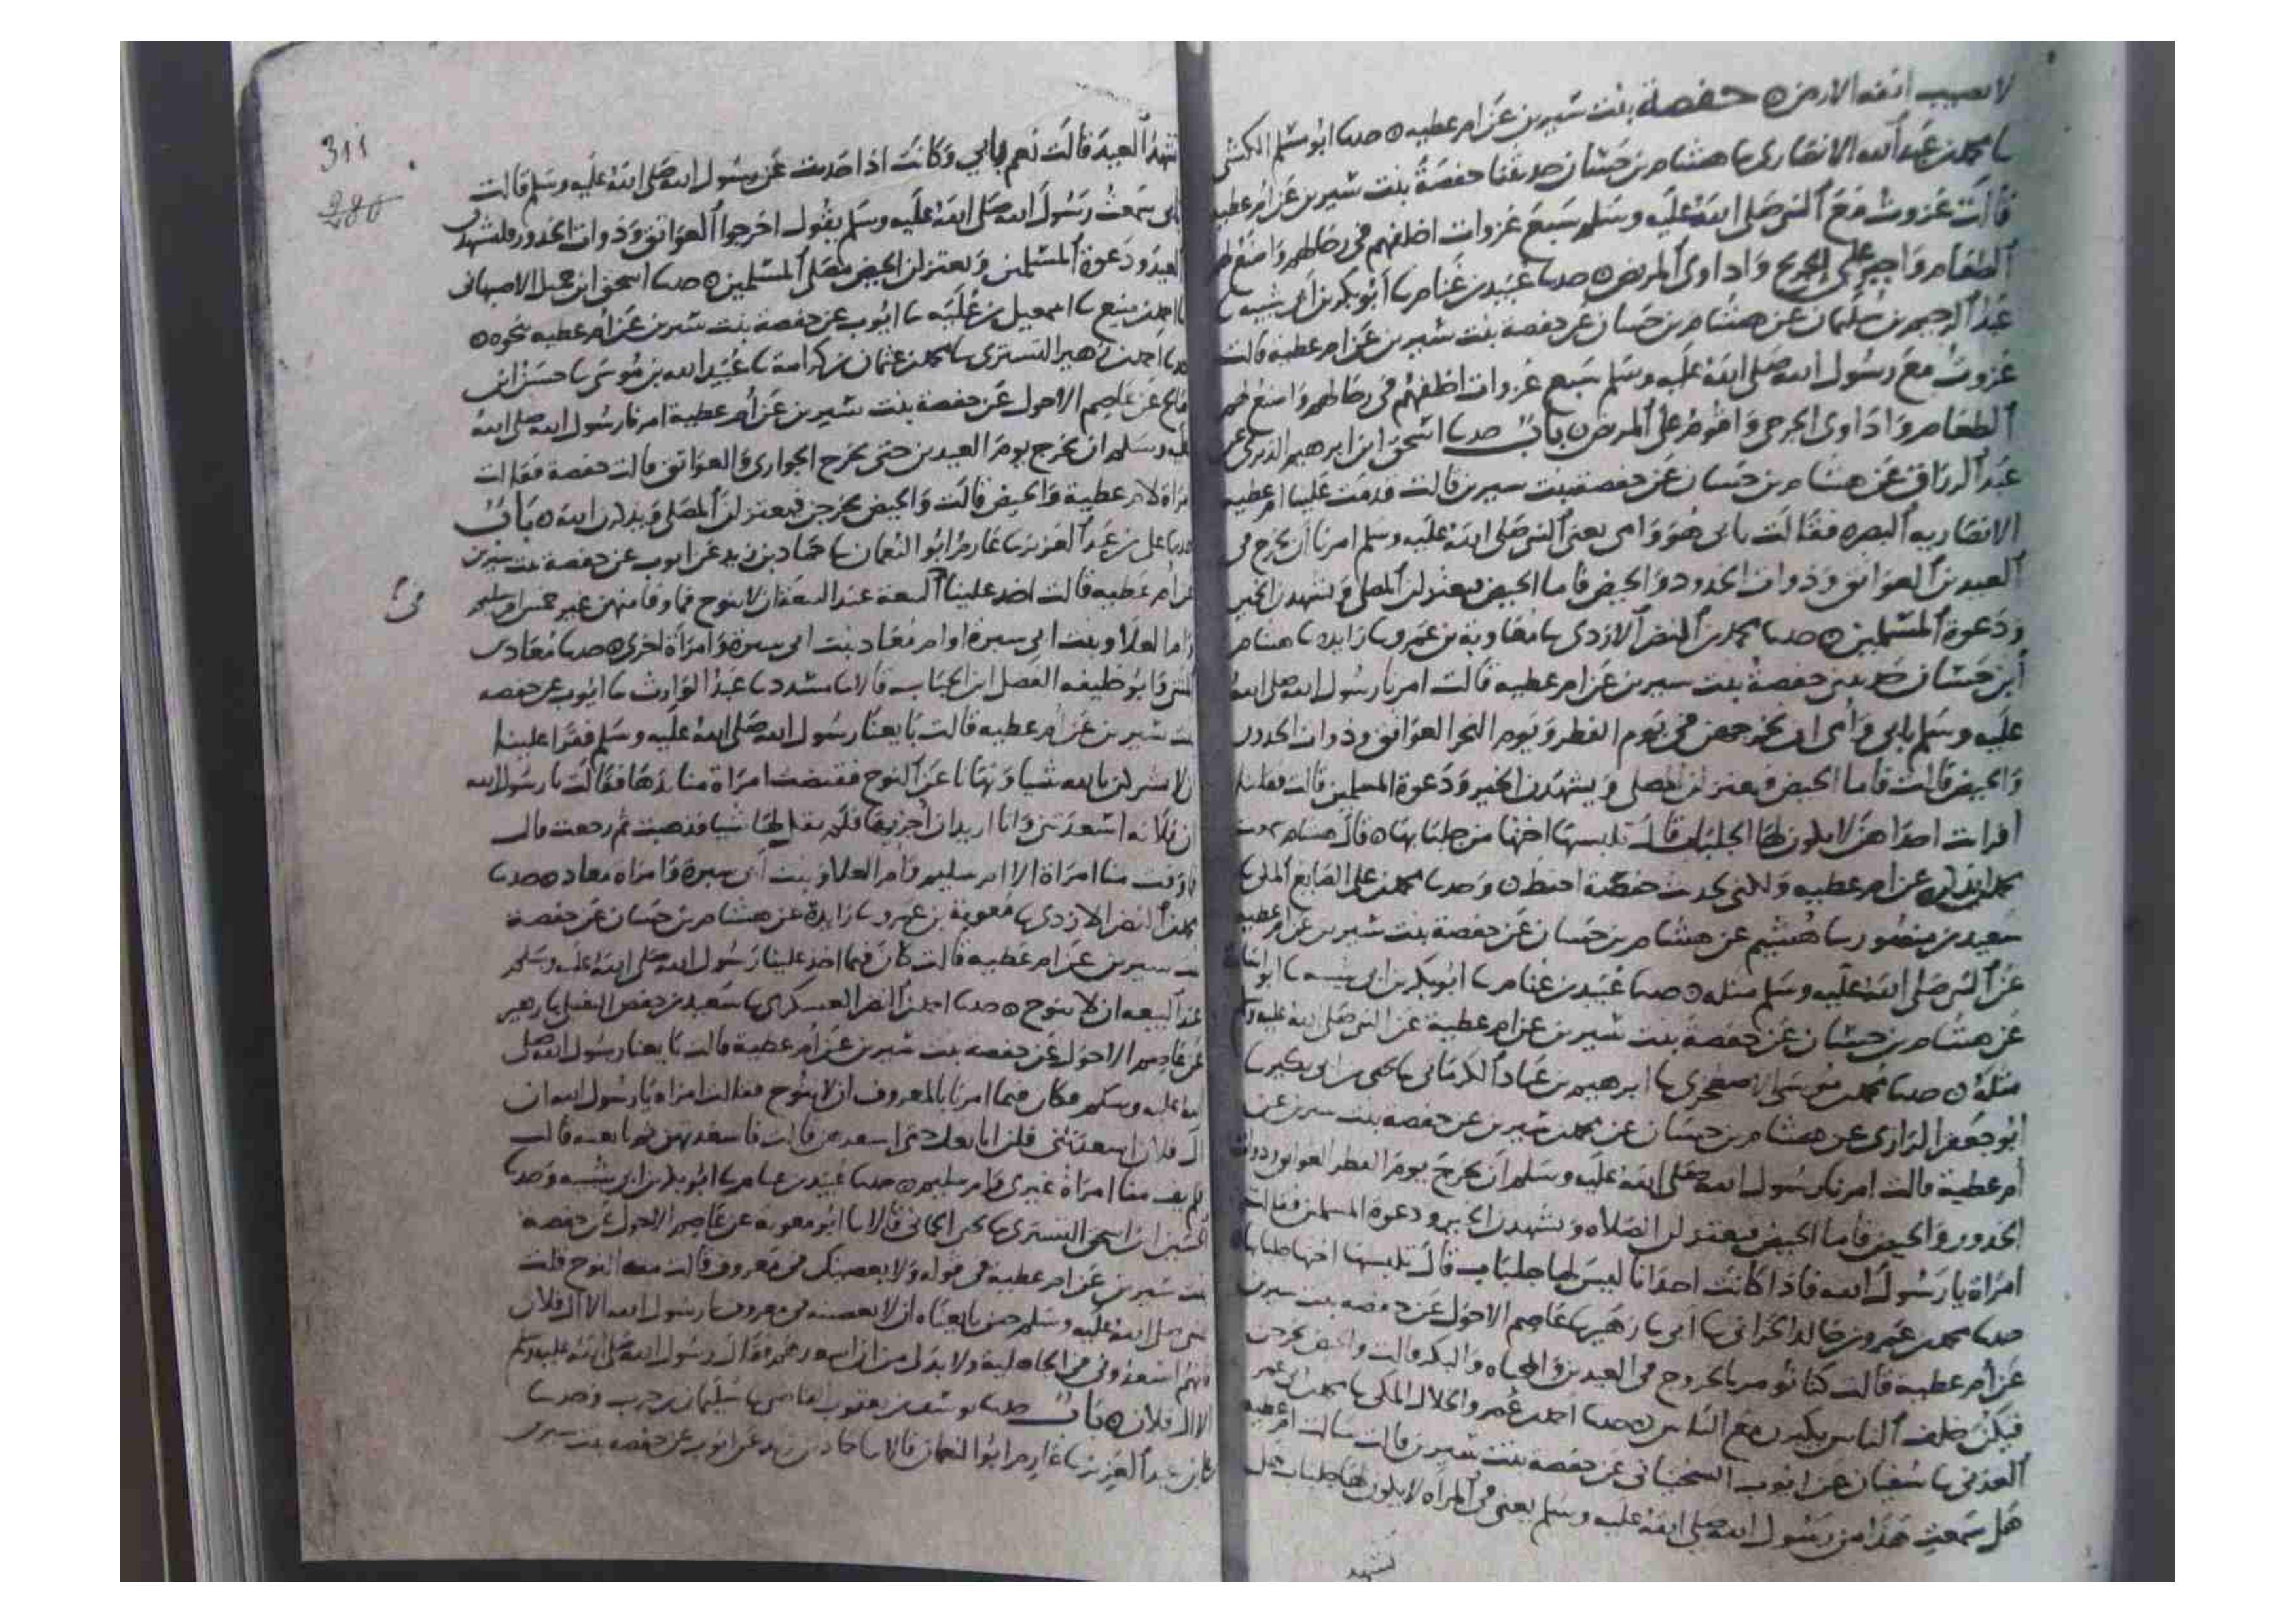 لا تصيب انفه الارض ه حفصة بنت سيرين عن ام عطيه ه حدثنا ابو مسلم الكشي
نا محمد بن عبد الله الانصاري نا هشام بن حسان حدثتنا حفصة بنت سيرين عن ام عطيه
قالت غزوت مع النبي صلى الله عليه وسلم سبع غزوات اخلفهم في رحالهم واصنع لهم
الطعام واجيز على الجريح واداوي المريض ه حدثنا عبيد بن غنام نا ابو بكر بن ابي شيبه نا
عبد الرحيم بن سليمان عن هشام بن حسان عن حفصة بنت سيرين عن ام عطيه قالت
غزوت مع رسول الله صلى الله عليه وسلم سبع غزوات اخلفهم في رحالهم واصنع لهم
الطعام واداوي الجرحى واقوم على المريض ه باب حدثنا اسحق ابن ابرهيم الدبري عن
عبد الرزاق عن هشام بن حسان عن حفصة بنت سيرين قالت قدمت علينا ام عطيه
الانصاريه البصره فقالت بابي هو وامي يعني النبي صلى الله عليه وسلم امرنا ان نخرج في
العيدين العواتق وذوات الخدور والحيض فاما الحيض فيعتزلن المصلى ويشهدن الخير
ودعوة المسلمين ه حدثنا محمد بن النضر الازدي نا معاوية بن عمرو نا زايده نا هشام
ابن حسان حدثتني حفصة بنت سيرين عن ام عطيه قالت امرنا رسول الله صلى الله
عليه وسلم بابي وامي ان نخرجهن في يوم الفطر ويوم النحر العواتق وذوات الخدور
والحيض قالت فاما الحيض فيعتزلن المصلى ويشهدن الخير ودعوة المسلمين قالت فقلنا
افرات احداهن لا يكون لها الجلباب قال تلبسها اختها من جلبابها ه قال هشام
عن ام عطيه ولكني بحديث حفصة احفظ ه وحدثنا محمد بن علي الصايغ المكي نا
سعيد بن منصور نا هشيم عن هشام بن حسان عن حفصة بنت سيرين عن ام عطيه
عن النبي صلى الله عليه وسلم مثله ه حدثنا عبيد بن غنام نا ابو بكر بن ابي شيبه نا ابو اسامة
عن هشام بن حسان عن حفصة بنت سيرين عن ام عطية عن النبي صلى الله عليه وسلم
مثله ه حدثنا محمد بن موسى الاصطخري نا ابرهيم بن عباد الكرماني نا يحيى بن ابي بكير نا
ابو جعفر الرازي عن هشام بن حسان عن محمد بن سيرين عن حفصة بنت سيرين عن
ام عطية قالت امرنا رسول الله صلى الله عليه وسلم ان نخرج يوم الفطر العواتق وذوات
الخدور والحيض فاما الحيض فيعتزلن الصلاه ويشهدن الخير ودعوة المسلمين فقالت
امراة يا رسول الله فاذا كانت احدانا ليس لها جلباب قال تلبسها اختها جلبابها
حدثنا محمد بن عمرو بن خالد الحراني نا ابي نا زهير نا عاصم الاحول عن حفصة بنت سيرين
عن ام عطيه قالت كنا نؤمر بالخروج في العيدين والمخباه والبكر قالت والحيض يخرجن
فيكن خلف الناس يكبرن مع الناس ه حدثنا احمد بن عمرو الخلال المكي نا محمد ابن ابي عمر
العدني نا سفيان عن ايوب السختياني عن حفصة بنت سيرين قالت سالت ام عطيه
هل سمعت هذا من رسول الله صلى الله عليه وسلم يعني في المراه لا يكون لها جلباب هل
تشهد
311
280
تشهد العيد قالت نعم بابي وكانت اذا حدثت عن رسول الله صلى الله عليه وسلم قالت
بابي سمعت رسول الله صلى الله عليه وسلم يقول اخرجوا العواتق وذوات الخدور فليشهدن
العيد ودعوة المسلمين ويعتزلن الحيض مصلى المسلمين ه حدثنا اسحق ابن جميل الاصبهاني
نا احمد بن منيع نا اسمعيل بن علية نا ايوب عن حفصة بنت سيرين عن ام عطيه نحوه ه
حدثنا احمد بن زهير التستري نا محمد بن عثمان بن كرامة نا عبيد الله بن موسى نا حسن ابن
صالح عن عاصم الاحول عن حفصة بنت سيرين عن ام عطية امرنا رسول الله صلى الله
عليه وسلم ان نخرج يوم العيدين حتى نخرج الجواري والعواتق قالت حفصة فقالت
امراة لام عطية والحيض قالت والحيض يخرجن فيعتزلن المصلى ويذكرن الله ه باب
حدثنا علي بن عبد العزيز نا عارم ابو النعمان نا حماد بن زيد عن ايوب عن حفصة بنت سيرين
عن ام عطيه قالت اخذ علينا البيعة ان لا ننوح فما وفا منهن غير خمس ام سليم
وام العلا وبنت ابي سبرة او ام معاد بنت ابي سبرة وامراة اخرى ه حدثنا معاد بن
المثنى وابو خليفه الفضل ابن الحباب قالا نا مسدد نا عبد الوارث نا ايوب عن حفصه
بنت سيرين عن ام عطيه قالت بايعنا رسول الله صلى الله عليه وسلم فقرا علينا
ان لا يشركن بالله شيا ونهانا عن النوح فقبضت امراة منا يدها فقالت يا رسول الله
ان فلانه اسعدتني وانا اريد ان اجزيها فلم يقل لها شيا فذهبت ثم رجعت قال
فما وفت منا امراة الا ام سليم وام العلا وبنت ابي سبرة وامراه معاد ه حدثنا
محمد بن النضر الازدي نا معوية بن عمرو نا زايدة عن هشام بن حسان عن حفصة
بنت سيرين عن ام عطيه قالت كان فيما اخذ علينا رسول الله صلى الله عليه وسلم
عند البيعه ان لا ننوح ه حدثنا احمد بن النضر العسكري نا سعيد بن حفص النفيلي نا زهير
عن عاصم الاحول عن حفصه بنت سيرين عن ام عطية قالت بايعنا رسول الله صلى
الله عليه وسلم فكان فيما امرنا بالمعروف ان لا ننوح فقالت امراه يا رسول الله ان
ال فلان اسعدتني فلن ابايعك حتى اسعدهن قالت فاسعدتهن ثم بايعته قالت
لم يف منا امراة غيري وام سليم ه حدثنا عبيد بن غنام نا ابو بكر بن ابي شيبه وحدثنا
الحسين ابن اسحق التستري نا يحيى الحماني قالا نا ابو معوية عن عاصم الاحول عن حفصة
بنت سيرين عن ام عطية في قوله ولا يعصينك في معروف قالت منه النوح قلت
للنبي صلى الله عليه وسلم حين بايعناه ان لا نعصينه في معروف يا رسول الله الا ال فلان
فانهم اسعدوني في الجاهلية ولا بد لي من ان اسعدهم فقال رسول الله صلى الله عليه وسلم
الا ال فلان ه باب حدثنا يوسف بن يعقوب القاضي نا سليمان بن حرب وحدثنا
علي بن عبد العزيز نا عارم ابو النعمان قالا نا حماد بن زيد عن ايوب عن حفصه بنت سيرين